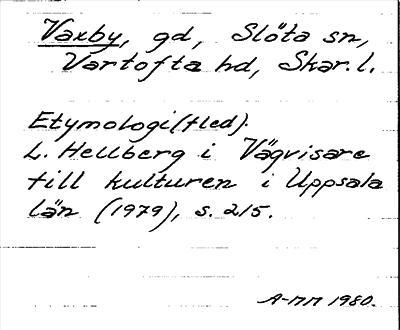 Vaxby, gd, Slöta sn,
Vartofta hd, Skar. l.
Etymologi (fled).
L. Hellberg i Vägvisare
till kulturen i Uppsala
län (1979), s. 215.
A-MM 1980.